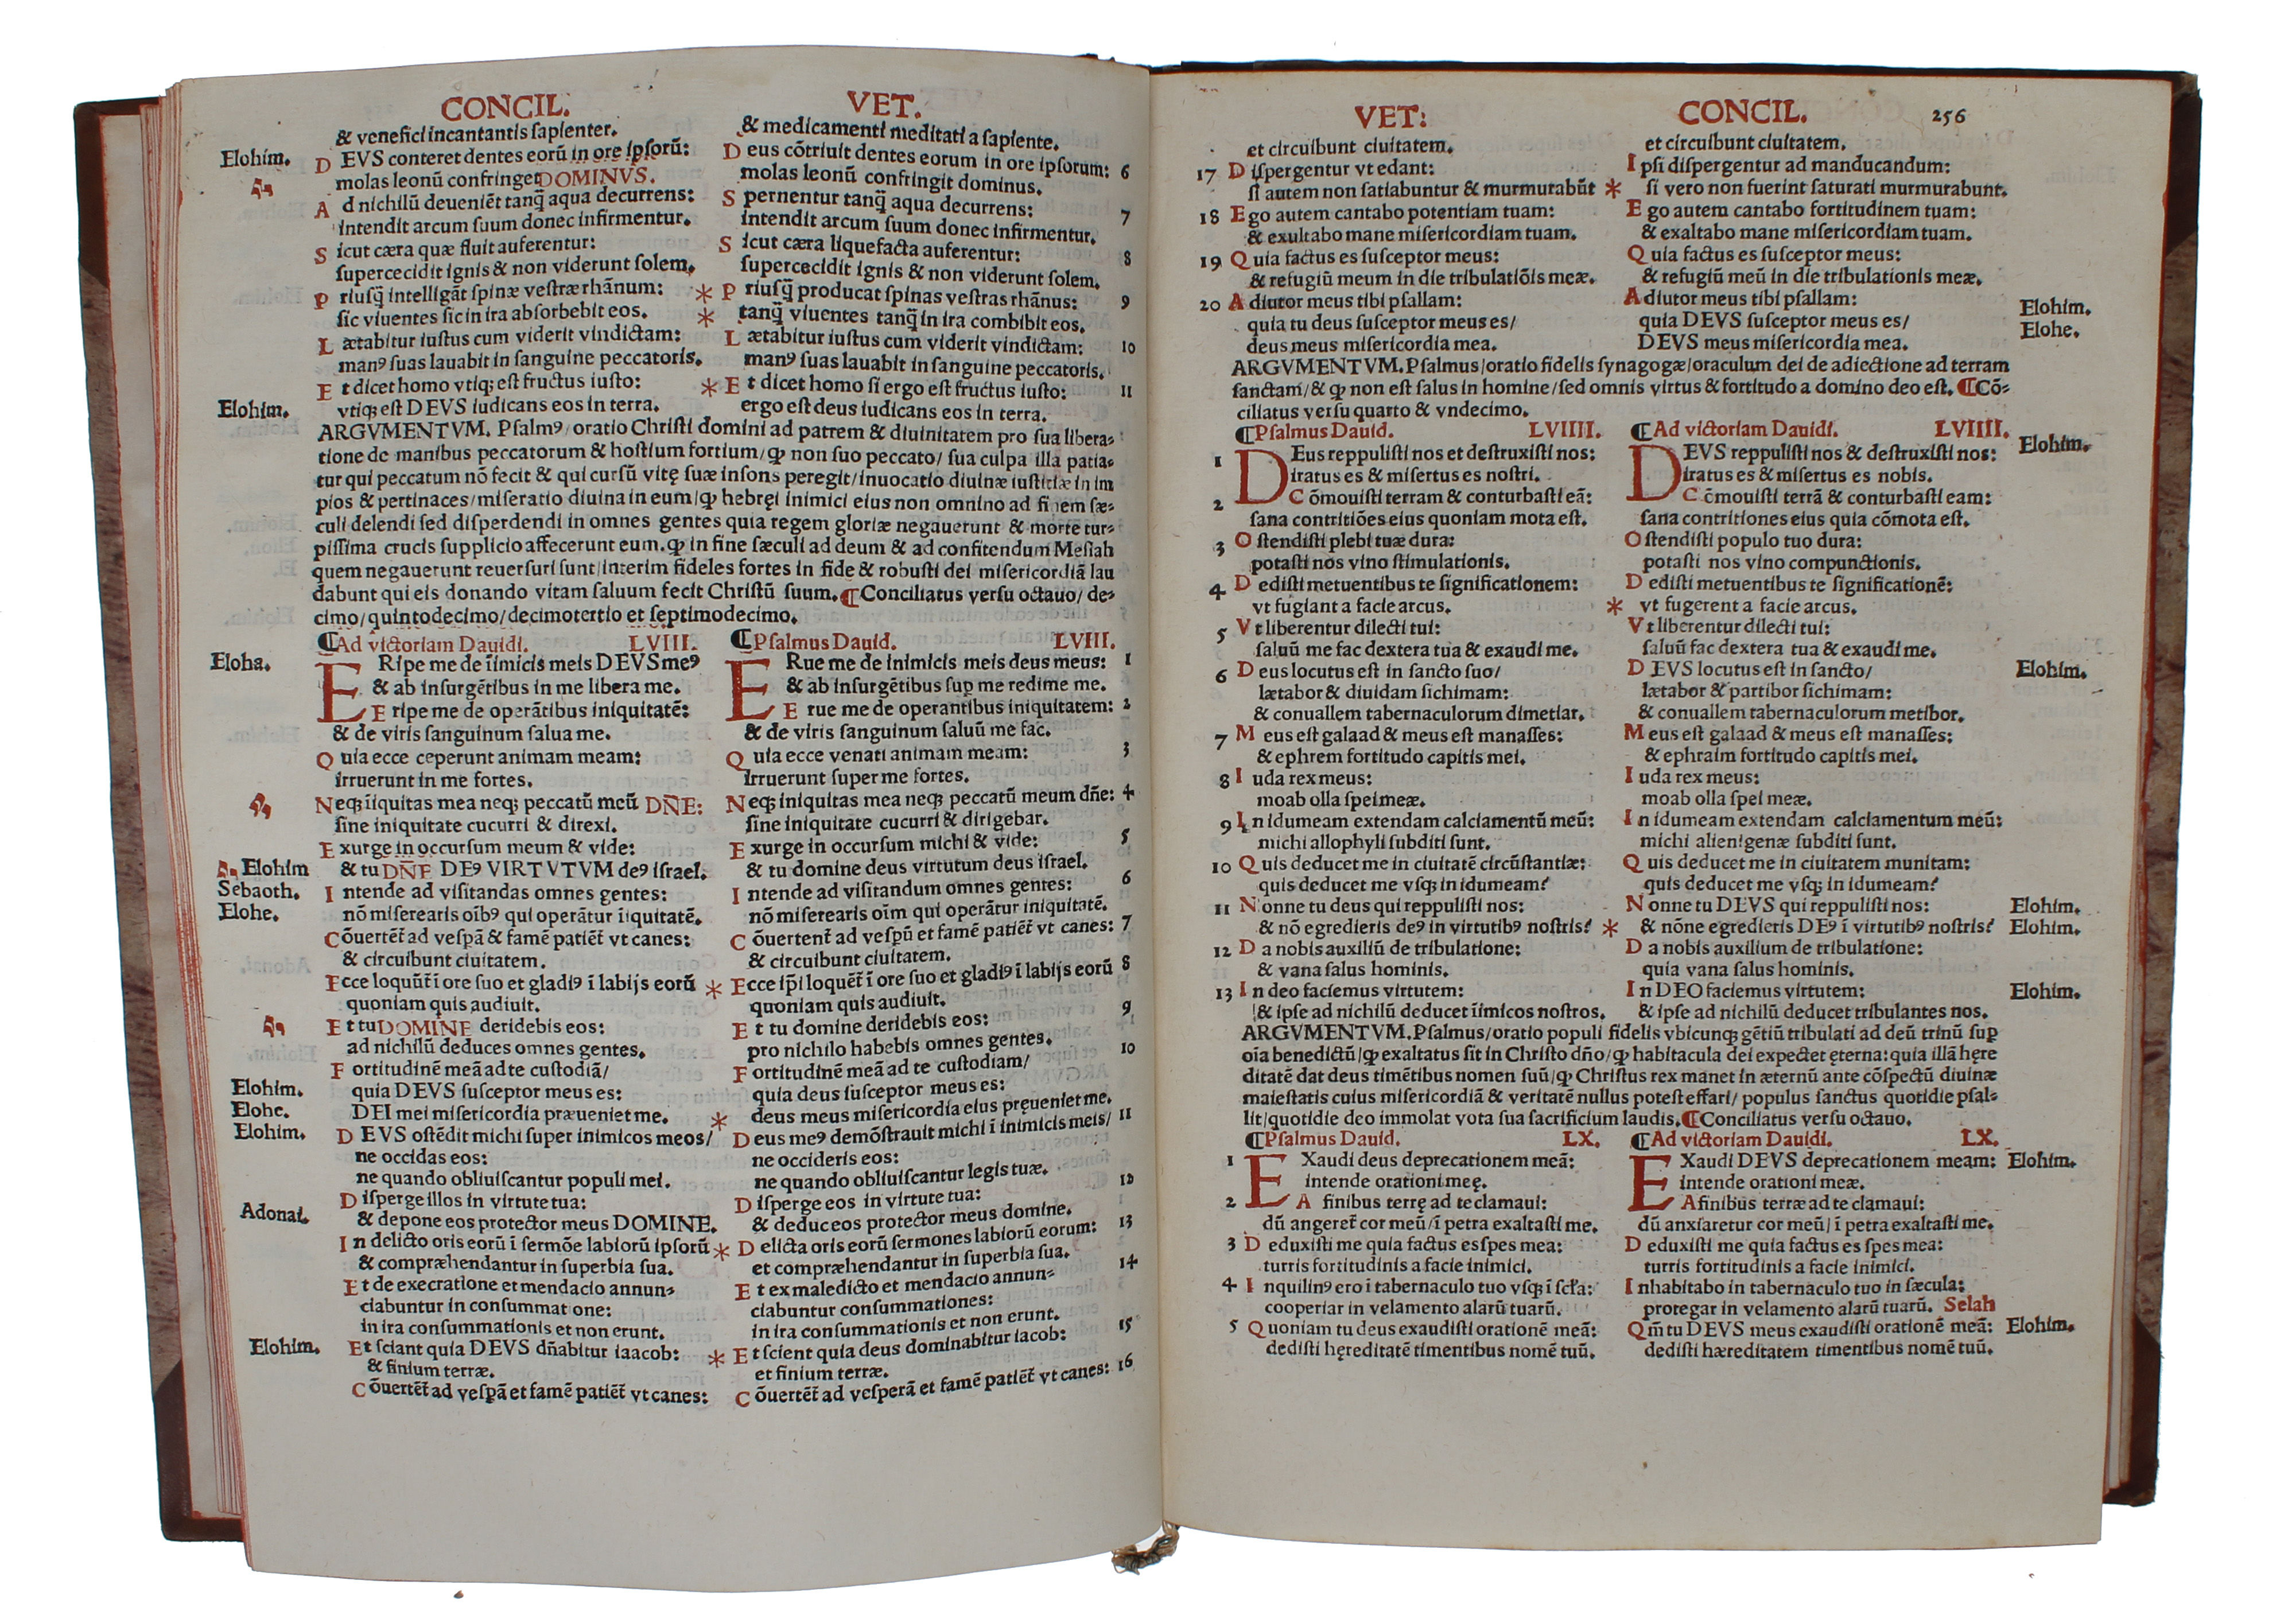 CONCIL.
& venefici incantantis sapienter.
Elohim. D EVS conteret dentes eorū in ore ipsorū:
molas leonū confringet DOMINVS.
A d nichilū deueniēt tanq̄ aqua decurrens:
intendit arcum suum donec infirmentur.
S icut cæra quæ fluit auferentur:
supercecidit ignis & non viderunt solem.
P riusq̄ intelligāt spinæ vestræ rhānum: *
sic viuentes sic in ira absorbebit eos. *
L ætabitur iustus cum viderit vindictam:
manꝰ suas lauabit in sanguine peccatoris.
E t dicet homo vtiqꝫ est fructus iusto: *
Elohim. vtiqꝫ est DEVS iudicans eos in terra.
VET.
& medicamenti meditati a sapiente.
D eus cōtriuit dentes eorum in ore ipsorum: 6
molas leonū confringit dominus.
S pernentur tanq̄ aqua decurrens: 7
intendit arcum suum donec infirmentur.
S icut cæra liquefacta auferentur: 8
supercecidit ignis & non viderunt solem.
P riusq̄ producat spinas vestras rhānus: 9
tanq̄ viuentes tanq̄ in ira combibit eos.
L ætabitur iustus cum viderit vindictam: 10
manꝰ suas lauabit in sanguine peccatoris.
E t dicet homo si ergo est fructus iusto: 11
ergo est deus iudicans eos in terra.
ARGVMENTVM. Psalmꝰ/oratio Christi domini ad patrem & diuinitatem pro sua libera⸗
tione de manibus peccatorum & hostium fortium/ꝙ non suo peccato/sua culpa illa patia⸗
tur qui peccatum nō fecit & qui cursū vitę suæ insons peregit/inuocatio diuinæ iusticiæ in im
pios & pertinaces/miseratio diuina in eum/ꝙ hebręi inimici eius non omnino ad finem sæ⸗
culi delendi sed disperdendi in omnes gentes quia regem gloriæ negauerunt & morte tur⸗
pissima crucis supplicio affecerunt eum. ꝙ in fine sæculi ad deum & ad confitendum Mesiah
quem negauerunt reuersuri sunt/interim fideles fortes in fide & robusti dei misericordiā lau
dabunt qui eis donando vitam saluum fecit Christū suum. ¶Conciliatus versu octauo/de⸗
cimo/quintodecimo/decimotertio et septimodecimo.
¶Ad victoriam Dauidi. LVIII.
Eloha. E Ripe me de īimicis meis DEVS meꝰ
& ab insurgētibus in me libera me.
E ripe me de operātibus iniquitatē:
& de viris sanguinum salua me.
Q uia ecce ceperunt animam meam:
irruerunt in me fortes.
N eqꝫ īiquitas mea neqꝫ peccatū meū DÑE:
sine iniquitate cucurri & direxi.
E xurge in occursum meum & vide:
Elohim & tu DÑE DEꝰ VIRTVTVM deꝰ israel.
Sebaoth. I ntende ad visitandas omnes gentes:
Elohe. nō miserearis oībꝰ qui operātur īiquitatē.
C ōuertēt̄ ad vespā & famē patiēt̄ vt canes:
& circuibunt ciuitatem.
E cce loquūt̄ ī ore suo et gladiꝰ ī labijs eorū *
quoniam quis audiuit.
E t tu DOMINE deridebis eos:
ad nichilū deduces omnes gentes.
F ortitudinē meā ad te custodiā/
Elohim. quia DEVS susceptor meus es:
Elohe. DEI mei misericordia præueniet me. *
Elohim. D EVS ostēdit michi super inimicos meos/
ne occidas eos:
ne quando obliuiscantur populi mei.
D isperge illos in virtute tua:
Adonai. & depone eos protector meus DOMINE.
I n delicto oris eorū ī sermōe labiorū ipsorū *
& compræhendantur in superbia sua.
E t de execratione et mendacio annun⸗
ciabuntur in consummatione:
in ira consummationis et non erunt.
Elohim. E t sciant quia DEVS dn̄abitur iaacob: *
& finium terræ.
C ōuertēt̄ ad vespā et famē patiēt̄ vt canes:
¶Psalmus Dauid. LVIII.
E Rue me de inimicis meis deus meus: 1
& ab insurgētibus sup̱ me redime me.
E rue me de operantibus iniquitatem: 2
& de viris sanguinum saluū me fac.
Q uia ecce venati animam meam: 3
irruerunt super me fortes.
N eqꝫ iniquitas mea neqꝫ peccatū meum dñe: 4
sine iniquitate cucurri & dirigebar.
E xurge in occursum michi & vide: 5
& tu domine deus virtutum deus israel.
I ntende ad visitandum omnes gentes: 6
nō miserearis oīm qui operātur iniquitatē.
C ōuertent̄ ad vespū et famē patiēt̄ vt canes: 7
& circuibunt ciuitatem.
E cce ip̄i loquēt̄ ī ore suo et gladiꝰ ī labijs eorū 8
quoniam quis audiuit.
E t tu domine deridebis eos: 9
pro nichilo habebis omnes gentes.
F ortitudinē meā ad te custodiam/ 10
quia deus susceptor meus es:
deus meus misericordia eius pręueniet me.
D eus meꝰ demōstrauit michi ī inimicis meis/ 11
ne occideris eos:
ne quando obliuiscantur legis tuæ.
D isperge eos in virtute tua: 12
& deduc eos protector meus domine.
D elicta oris eorū sermones labiorū eorum: 13
et compræhendantur in superbia sua.
E t ex maledicto et mendacio annun⸗ 14
ciabuntur consummationes:
in ira consummationis et non erunt.
E t scient quia deus dominabitur iacob: 15
et finium terræ.
C ōuertēt̄ ad vesperā et famē patiēt̄ vt canes: 16
VET:
et circuibunt ciuitatem.
17 D ispergentur vt edant:
si autem non satiabuntur & murmurabūt *
18 E go autem cantabo potentiam tuam:
& exultabo mane misericordiam tuam.
19 Q uia factus es susceptor meus:
& refugiū meum in die tribulatiōis meæ.
20 A diutor meus tibi psallam:
quia tu deus susceptor meus es/
deus meus misericordia mea.
CONCIL. 256
et circuibunt ciuitatem.
I psi dispergentur ad manducandum:
si vero non fuerint saturati murmurabunt.
E go autem cantabo fortitudinem tuam:
& exaltabo mane misericordiam tuam.
Q uia factus es susceptor meus:
& refugiū meū in die tribulationis meæ.
A diutor meus tibi psallam:
quia DEVS susceptor meus es/ Elohim.
DEVS meus misericordia mea. Elohe.
ARGVMENTVM. Psalmus/oratio fidelis synagogæ/oraculum dei de adiectione ad terram
sanctam/& ꝙ non est salus in homine/sed omnis virtus & fortitudo a domino deo est. ¶Cō⸗
ciliatus versu quarto & vndecimo.
¶Psalmus Dauid. LVIIII.
1 D Eus reppulisti nos et destruxisti nos:
iratus es & misertus es nostri.
2 C ōmouisti terram & conturbasti eā:
sana contritiōes eius quoniam mota est.
3 O stendisti plebi tuæ dura:
potasti nos vino stimulationis.
4 D edisti metuentibus te significationem:
vt fugiant a facie arcus. *
5 V t liberentur dilecti tui:
saluū me fac dextera tua & exaudi me.
6 D eus locutus est in sancto suo/
lætabor & diuidam sichimam:
& conuallem tabernaculorum dimetiar.
7 M eus est galaad & meus est manasses:
& ephrem fortitudo capitis mei.
8 I uda rex meus:
moab olla spei meæ.
9 I n idumeam extendam calciamentū meū:
michi allophyli subditi sunt.
10 Q uis deducet me in ciuitatē circūstantiæ:
quis deducet me vsqꝫ in idumeam?
11 N onne tu deus qui reppulisti nos:
& nō egredieris deꝰ in virtutibꝰ nostris? *
12 D a nobis auxiliū de tribulatione:
& vana salus hominis.
13 I n deo faciemus virtutem:
& ipse ad nichilū deducet īimicos nostros.
¶Ad victoriam Dauidi. LVIIII.
D EVS reppulisti nos & destruxisti nos: Elohim.
iratus es & misertus es nobis.
C ōmouisti terrā & conturbasti eam:
sana contritiones eius quia cōmota est.
O stendisti populo tuo dura:
potasti nos vino compunctionis.
D edisti metuentibus te significationē:
vt fugerent a facie arcus.
V t liberentur dilecti tui:
saluū fac dextera tua & exaudi me.
D EVS locutus est in sancto/ Elohim.
lætabor & partibor sichimam:
& conuallem tabernaculorum metibor.
M eus est galaad & meus est manasses:
& ephraim fortitudo capitis mei.
I uda rex meus:
moab olla spei meæ.
I n idumeam extendam calciamentum meū:
michi alienigenæ subditi sunt.
Q uis deducet me in ciuitatem munitam:
quis deducet me vsqꝫ in idumeam?
N onne tu DEVS qui reppulisti nos: Elohim.
& nōne egredieris DEꝰ ī virtutibꝰ nostris? Elohim.
D a nobis auxilium de tribulatione:
quia vana salus hominis.
I n DEO faciemus virtutem: Elohim.
& ipse ad nichilū deducet tribulantes nos.
ARGVMENTVM. Psalmus/oratio populi fidelis vbicunqꝫ gētiū tribulati ad deū trinū sup̱
oīa benedictū/ꝙ exaltatus sit in Christo dn̄o/ꝙ habitacula dei expectet ęterna: quia illā hęre
ditatē dat deus timētibus nomen suū/ꝙ Christus rex manet in æternū ante cōspectū diuinæ
maiestatis cuius misericordiā & veritatē nullus potest effari/populus sanctus quotidie psal⸗
lit/quotidie deo immolat vota sua sacrificium laudis. ¶Conciliatus versu octauo.
¶Psalmus Dauid. LX.
1 E Xaudi deus deprecationem meā:
intende orationi meę.
2 A finibus terrę ad te clamaui:
dū angeret̄ cor meū/ī petra exaltasti me.
3 D eduxisti me quia factus es spes mea:
turris fortitudinis a facie inimici.
4 I nquilinꝰ ero ī tabernaculo tuo vsqꝫ ī scl̄a:
cooperiar in velamento alarū tuarū.
5 Q uoniam tu deus exaudisti orationē meā:
dedisti hęreditatē timentibus nomē tuū.
¶Ad victoriam Dauidi. LX.
E Xaudi DEVS deprecationem meam: Elohim.
intende orationi meæ.
A finibus terræ ad te clamaui:
dū anxiaretur cor meū/ī petra exaltasti me.
D eduxisti me quia factus es spes mea:
turris fortitudinis a facie inimici.
I nhabitabo in tabernaculo tuo in sæcula:
protegar in velamento alarū tuarū. Selah
Qm̄ tu DEVS meus exaudisti orationē meā: Elohim.
dedisti hæreditatem timentibus nomē tuū.